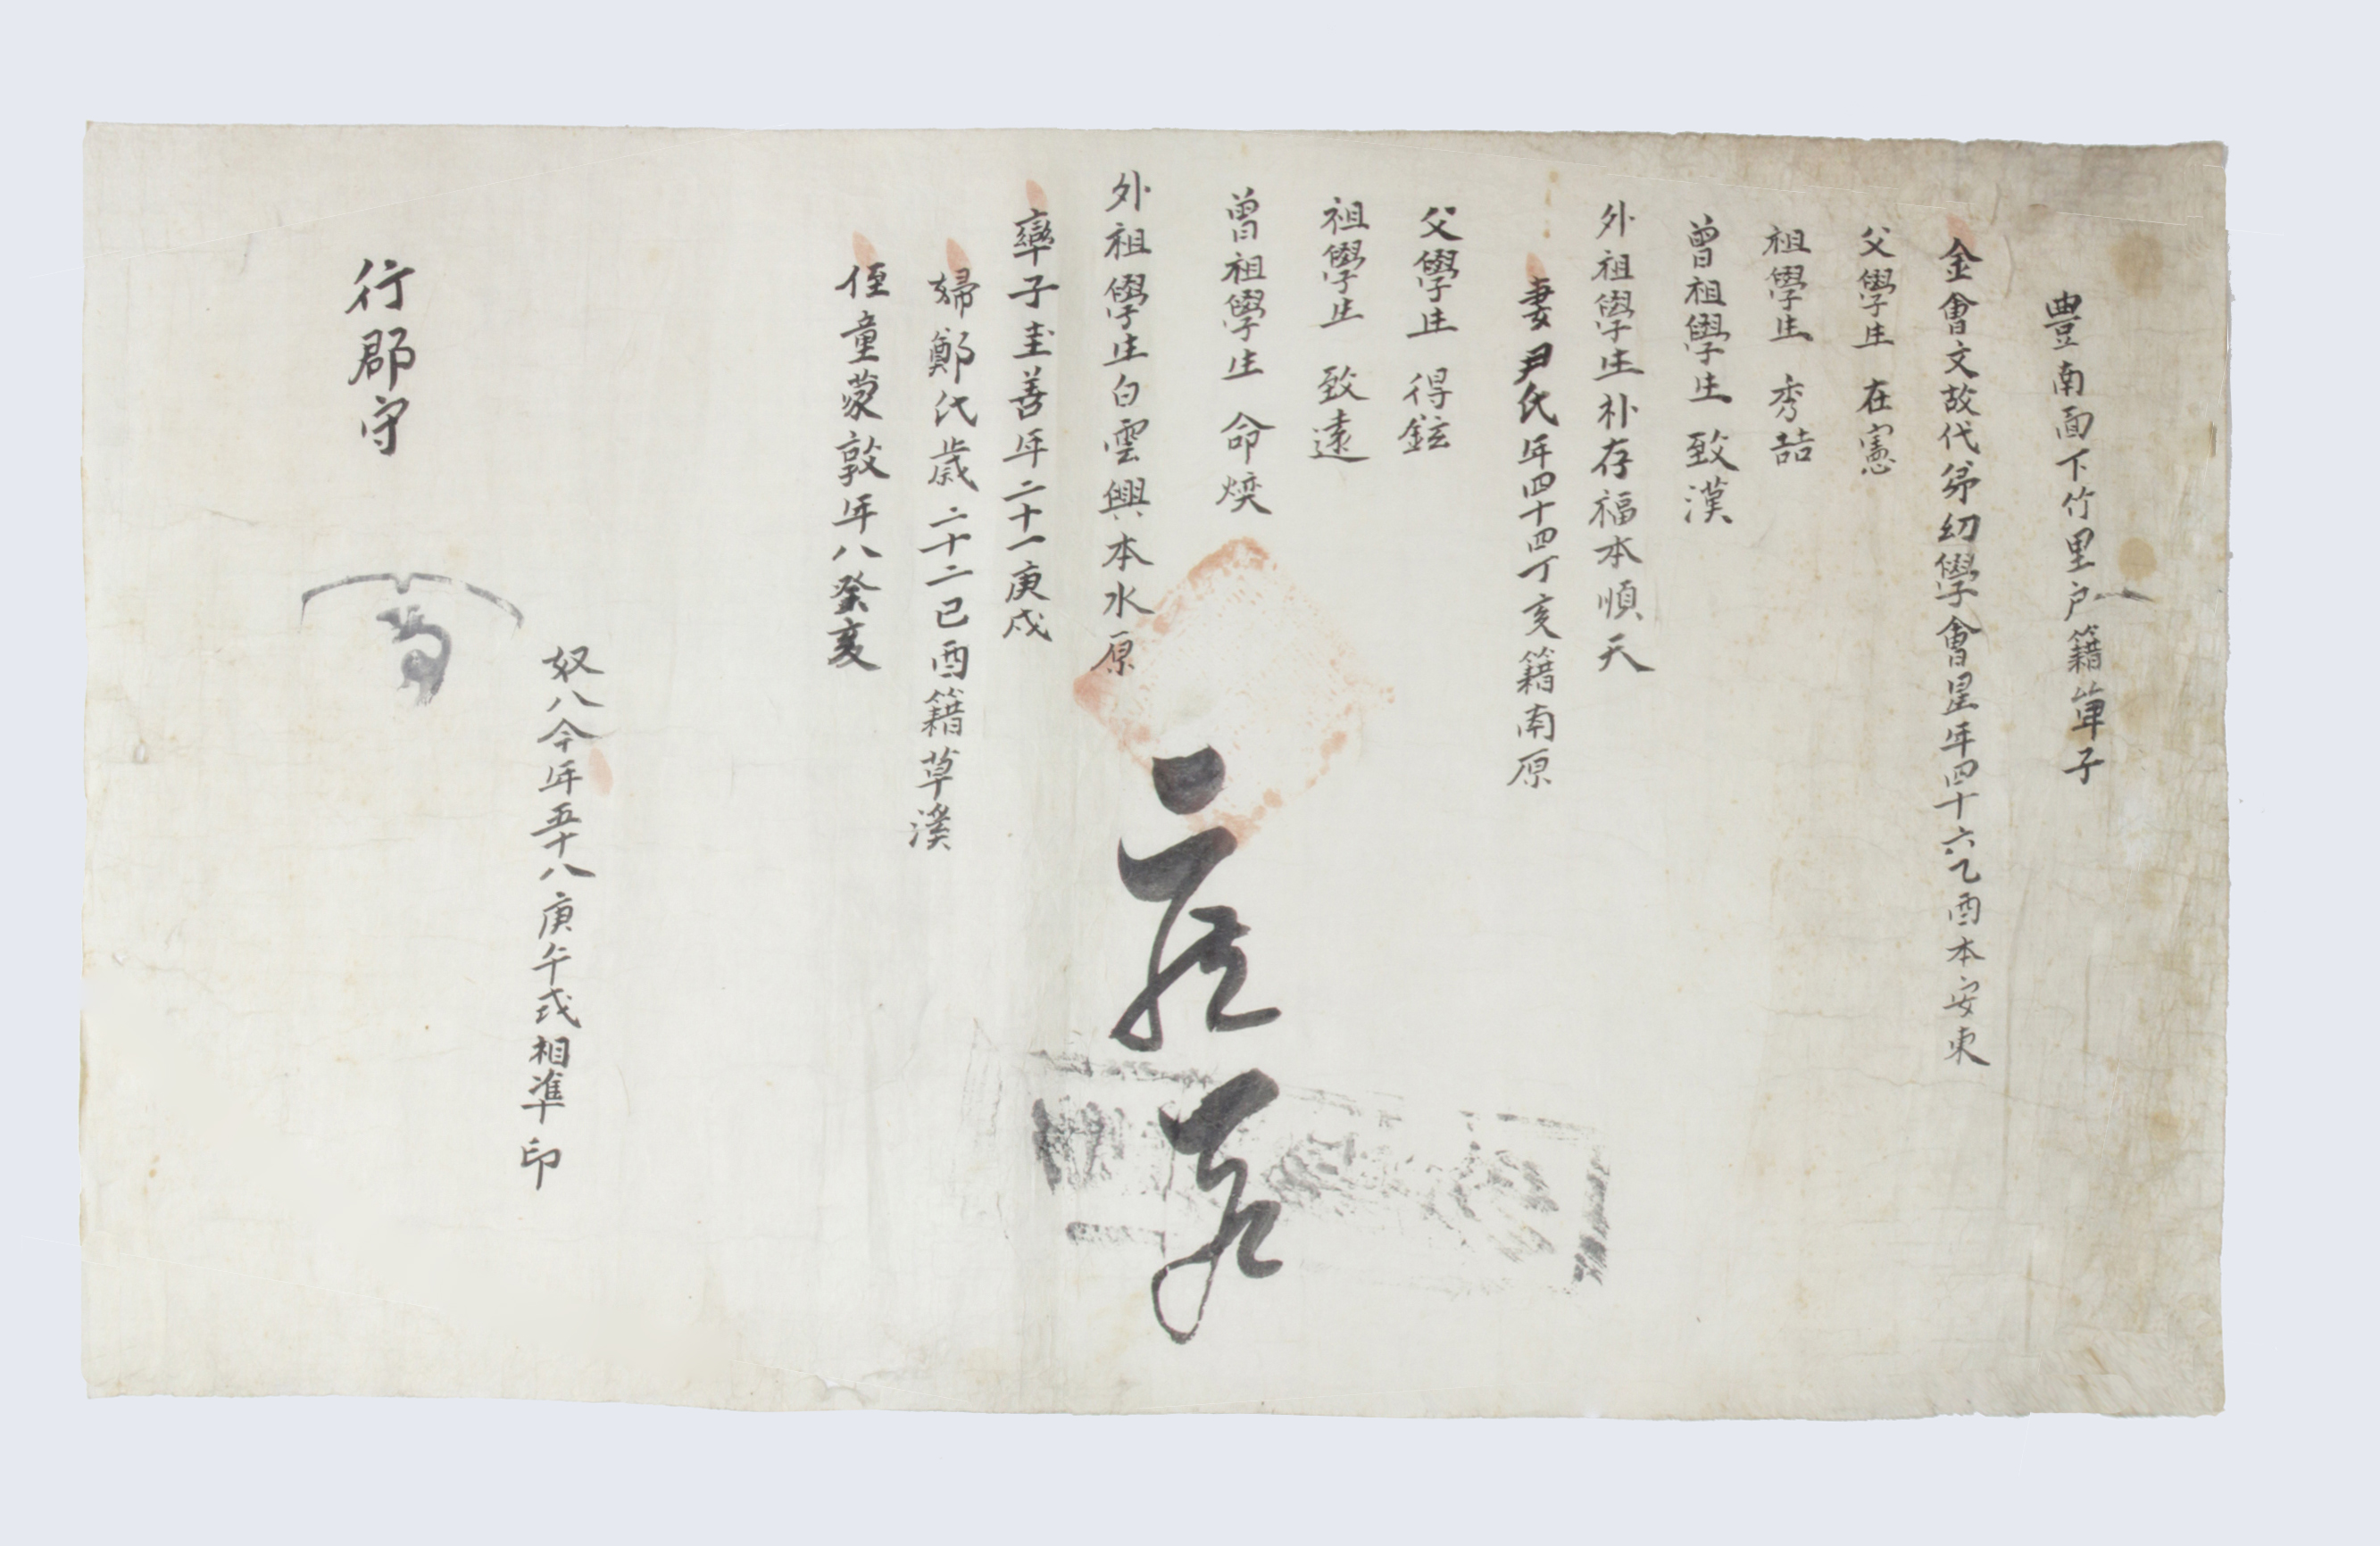 豊南面下竹里戶籍單子
金會文故代弟幼學會星年四十六乙酉本安東
父學生 在憲
祖學生 秀喆
曾祖學生 致漢
外祖學生朴存福本順天
妻尹氏年四十四丁亥籍南原
父學生 得鉉
祖學生 致遠
曾祖學生 命煥
外祖學生白雲興本水原
率子圭善年二十一庚戌
婦鄭氏歲二十二己酉籍草溪
侄童蒙敦年八癸亥
奴八今年五十八庚午戌相準印
行郡守